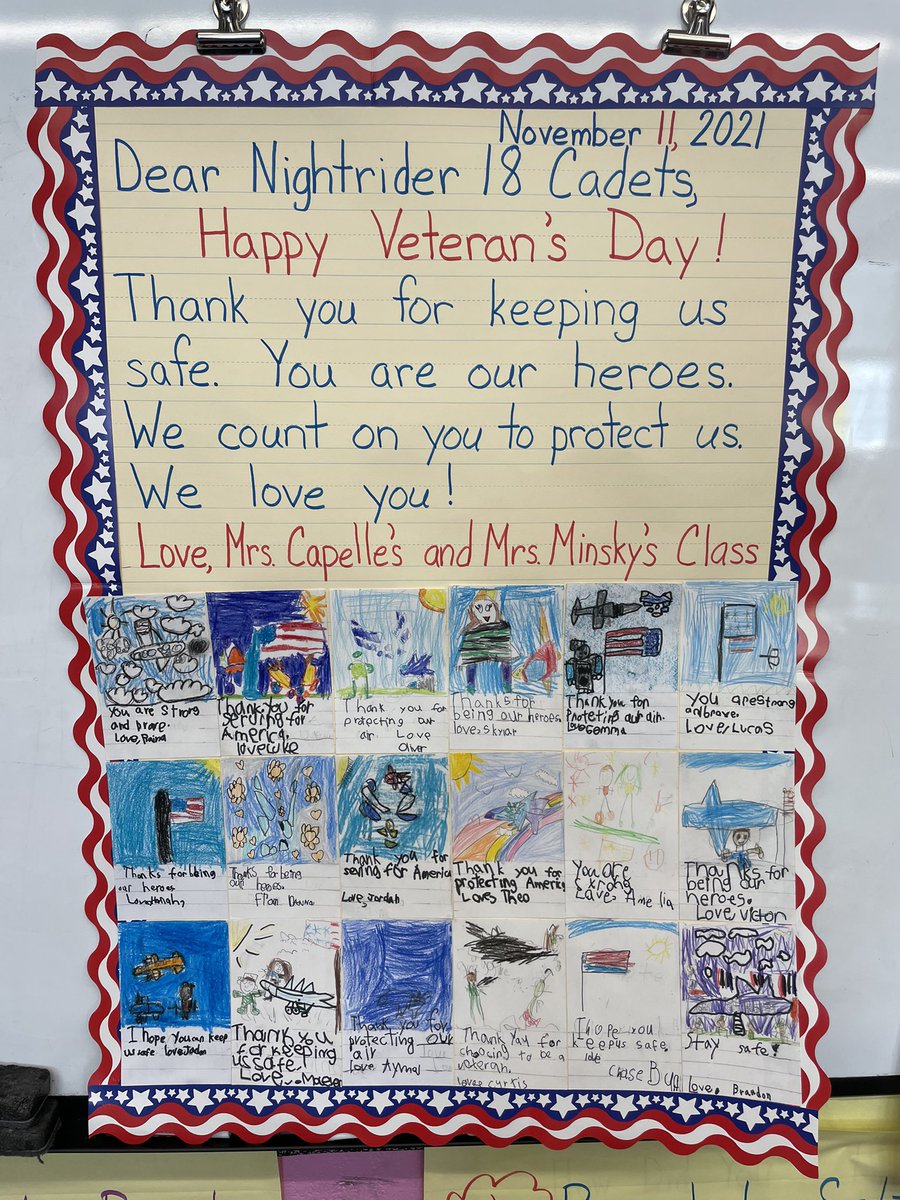 November 11, 2021
Dear Nightrider 18 Cadets,
Happy Veteran's Day!
Thank you for keeping us
safe. You are our heroes.
We count on you to protect us.
We love you!
Love, Mrs. Capelle's and Mrs. Minsky's Class
You are Strong
and
Love,
Thank you for
serving for
America.
love Luke
Thank you for
protecting our
air. Love
Oliver
Thanks for
being our heroes.
love, Skylar
Thank you for
Proteting our air.
Love Gemma
You are Strong
and brave.
Love, Lucas
Thanks for being
our heroes
Love Hannah,
Thanks for being
our heroes.
From
Thank you for
serving for America
Love, Jordan
Thank you for
protecting America
Love, Theo
You are
strong
Love, Amelia
Thanks for
being our
heroes.
Love Victor
I hope you can keep
us safe love
Thank you
for keeping
us safe.
Love,
Thank you for
protecting our
air
love Aymar
Thank Yay for
choosing to be a
veteran.
love, curtis
I hope you
keep us safe.
love
chase B
Stay safe!
love, Brandon